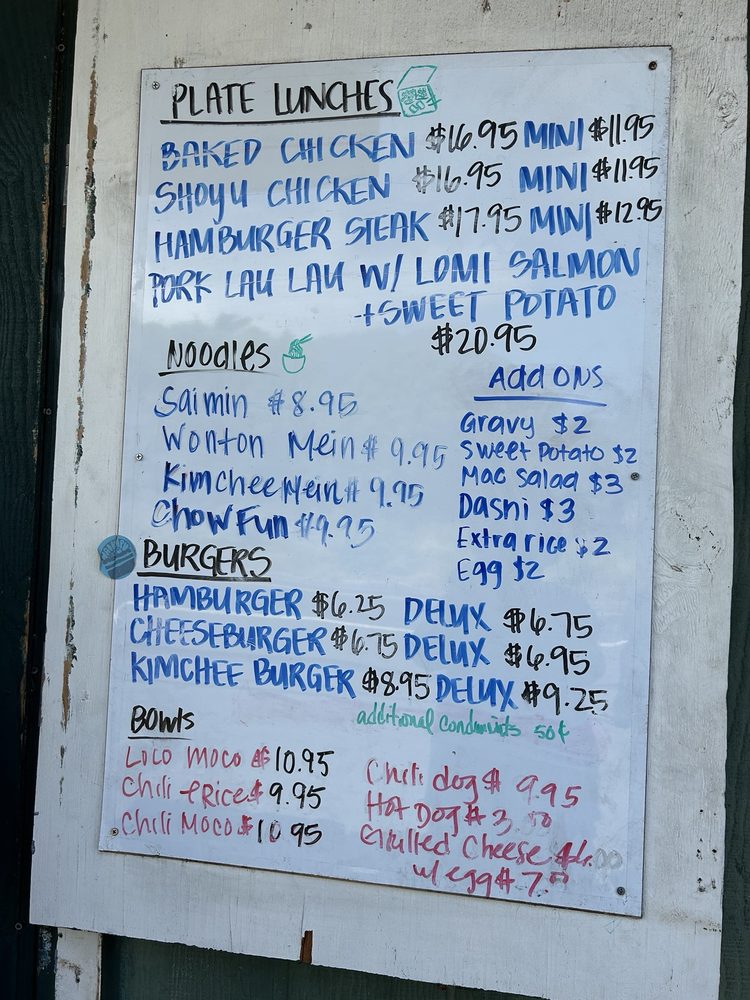 PLATE LUNCHES
BAKED CHICKEN $16.95 MINI $11.95
SHOYU CHICKEN $16.95 MINI $11.95
HAMBURGER STEAK $17.95 MINI $12.95
PORK LAU LAU W/ LOMI SALMON
+ SWEET POTATO
$20.95
Noodles
Saimin $8.95
Wonton Mein $9.95
Kimchee Mein $9.95
Chow Fun $9.95
Add ONS
Gravy $2
Sweet Potato $2
Mac Salad $3
Dashi $3
Extra rice $2
Egg $2
BURGERS
HAMBURGER $6.25 DELUX $6.75
CHEESEBURGER $6.75 DELUX $6.95
KIMCHEE BURGER $8.95 DELUX $9.25
additional condiments 50¢
Bowls
Loco moco $10.95
Chili & Rice $9.95
Chili Moco $10.95
Chili dog $9.95
Hot Dog $3.50
Grilled Cheese $6.00
w/ egg $7.